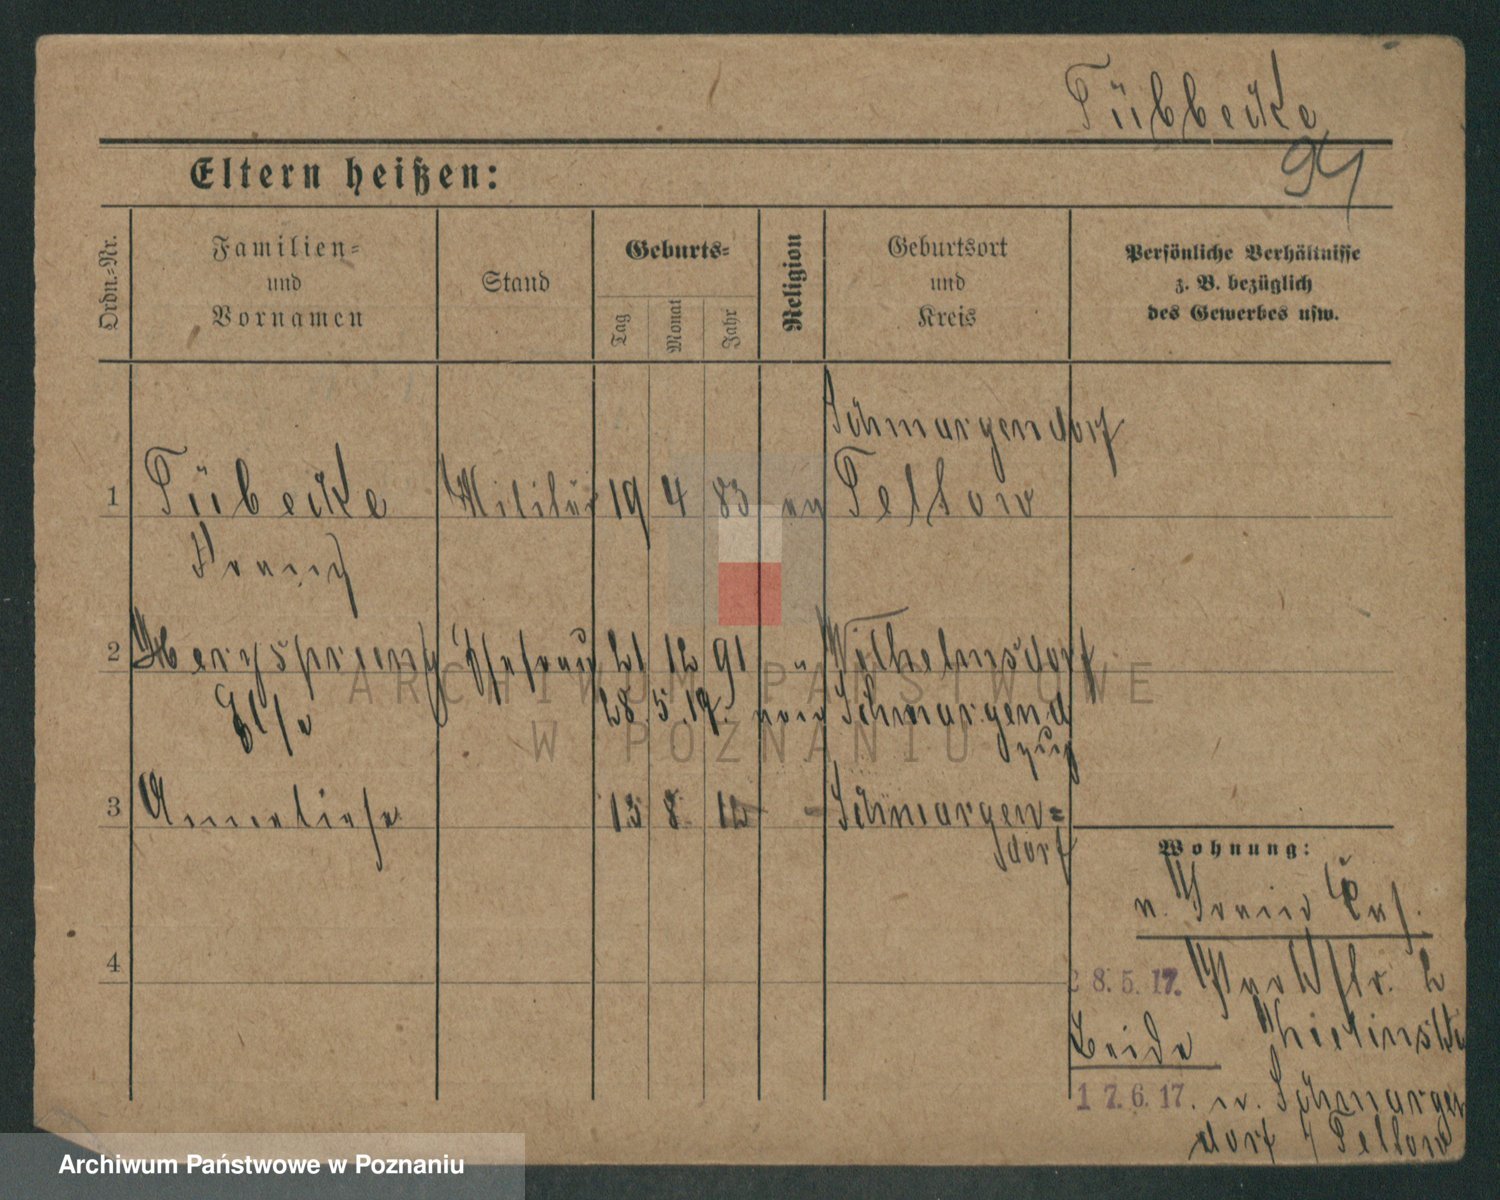 Tübbecke
94
Eltern heißen:
Ordn.-Nr.
Familien-
und
Vornamen
Stand
Geburts-
Tag
Monat
Jahr
Religion
Geburtsort
und
Kreis
Persönliche Verhältnisse
z. B. bezüglich
des Gewerbes usw.
Schmargendorf
1 Tübecke Militär 19 4 83 ev Teltow
Franz
2 Ehefrau 21 12 91 " Wilhelmsdorf
Else 28. 5. 17. von Schmargend
zug
3 Anneliese 13 8. 12 - Schmargen=
dorf
Wohnung:
n.
28. 5. 17. 2
Beide
17. 6. 17. n. Schmargen
dorf / Teltow
4
ARCHIWUM PAŃSTWOWE
W POZNANIU
Archiwum Państwowe w Poznaniu